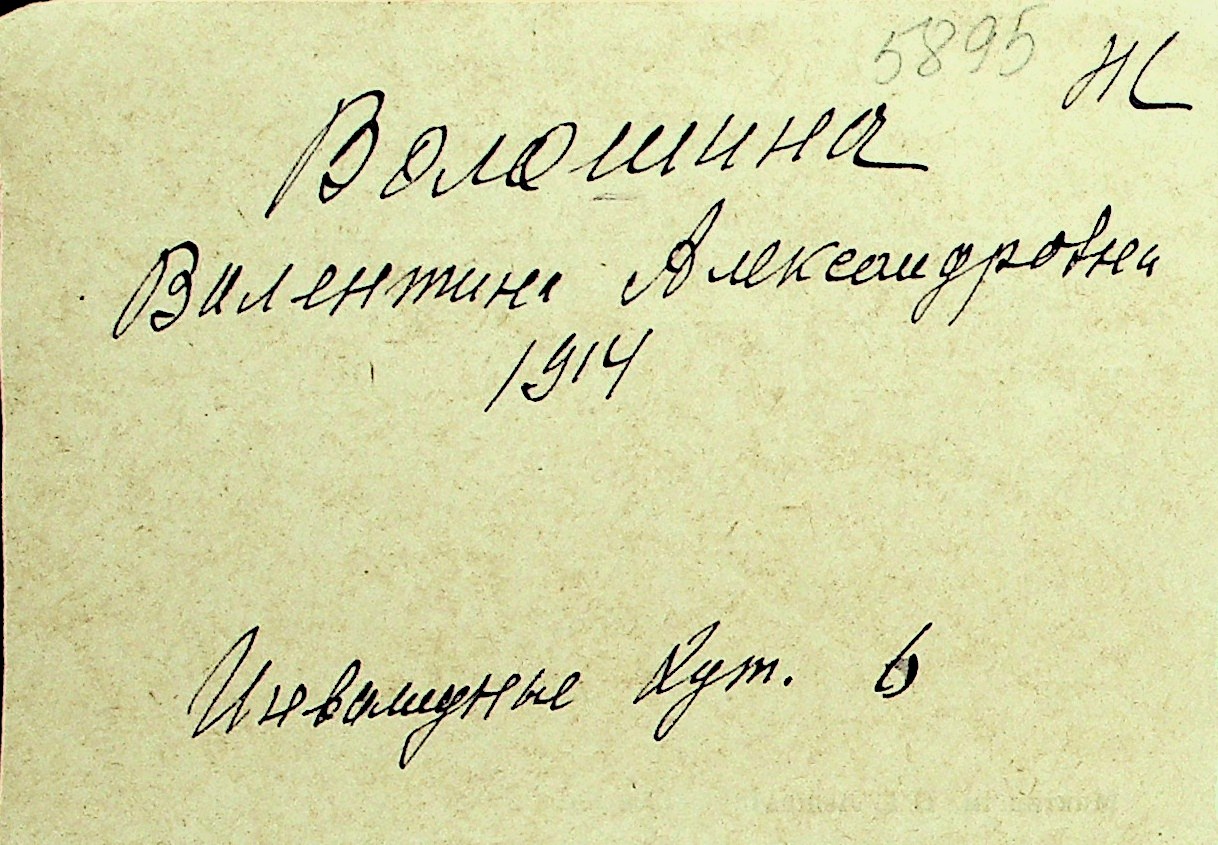 5895 Ж
Волошина
Валентина Александровна
1914
Инвалидные хут. 6